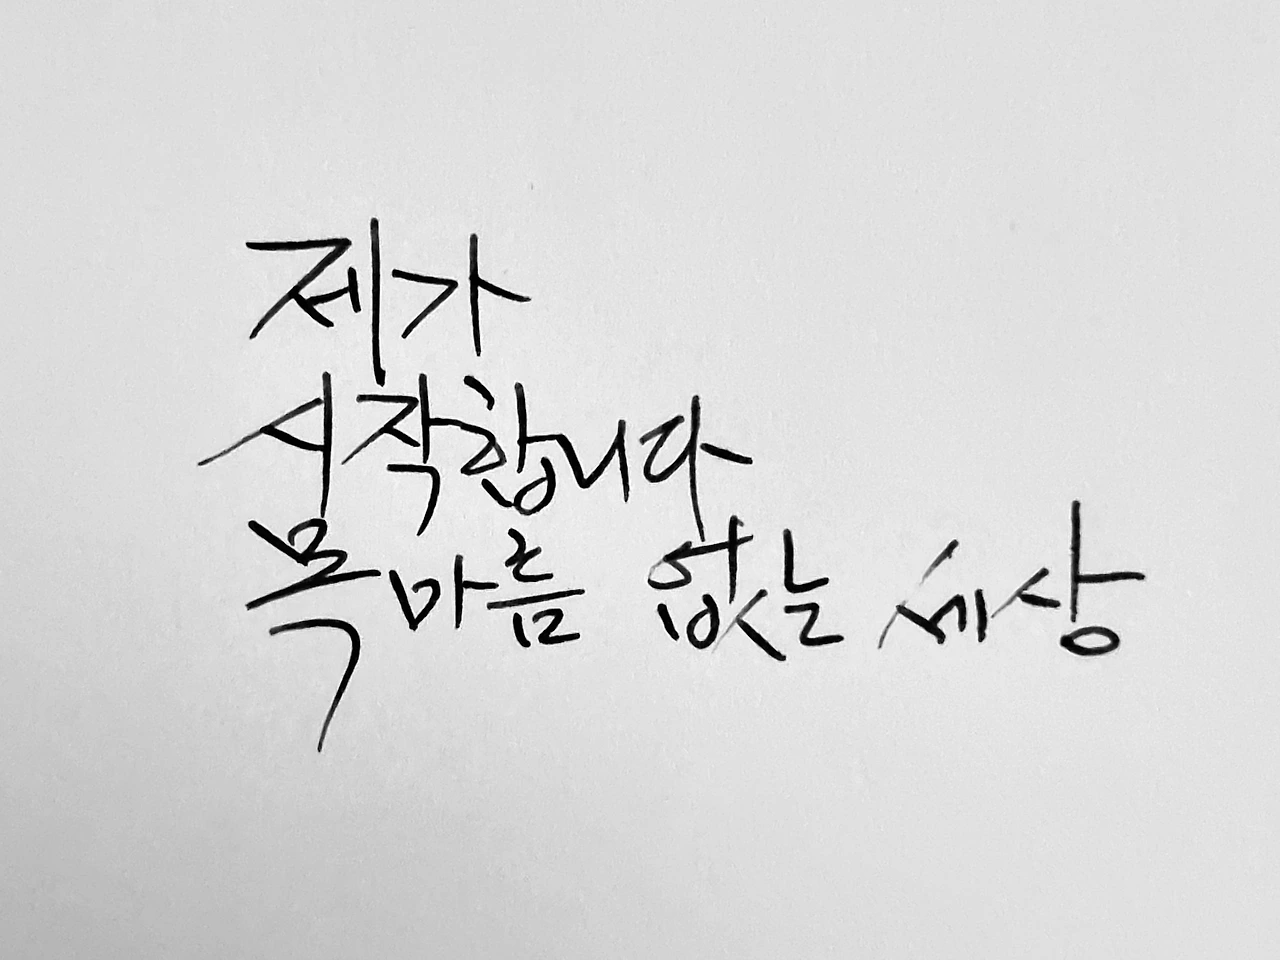 제가
시작합니다
목마름 없는 세상